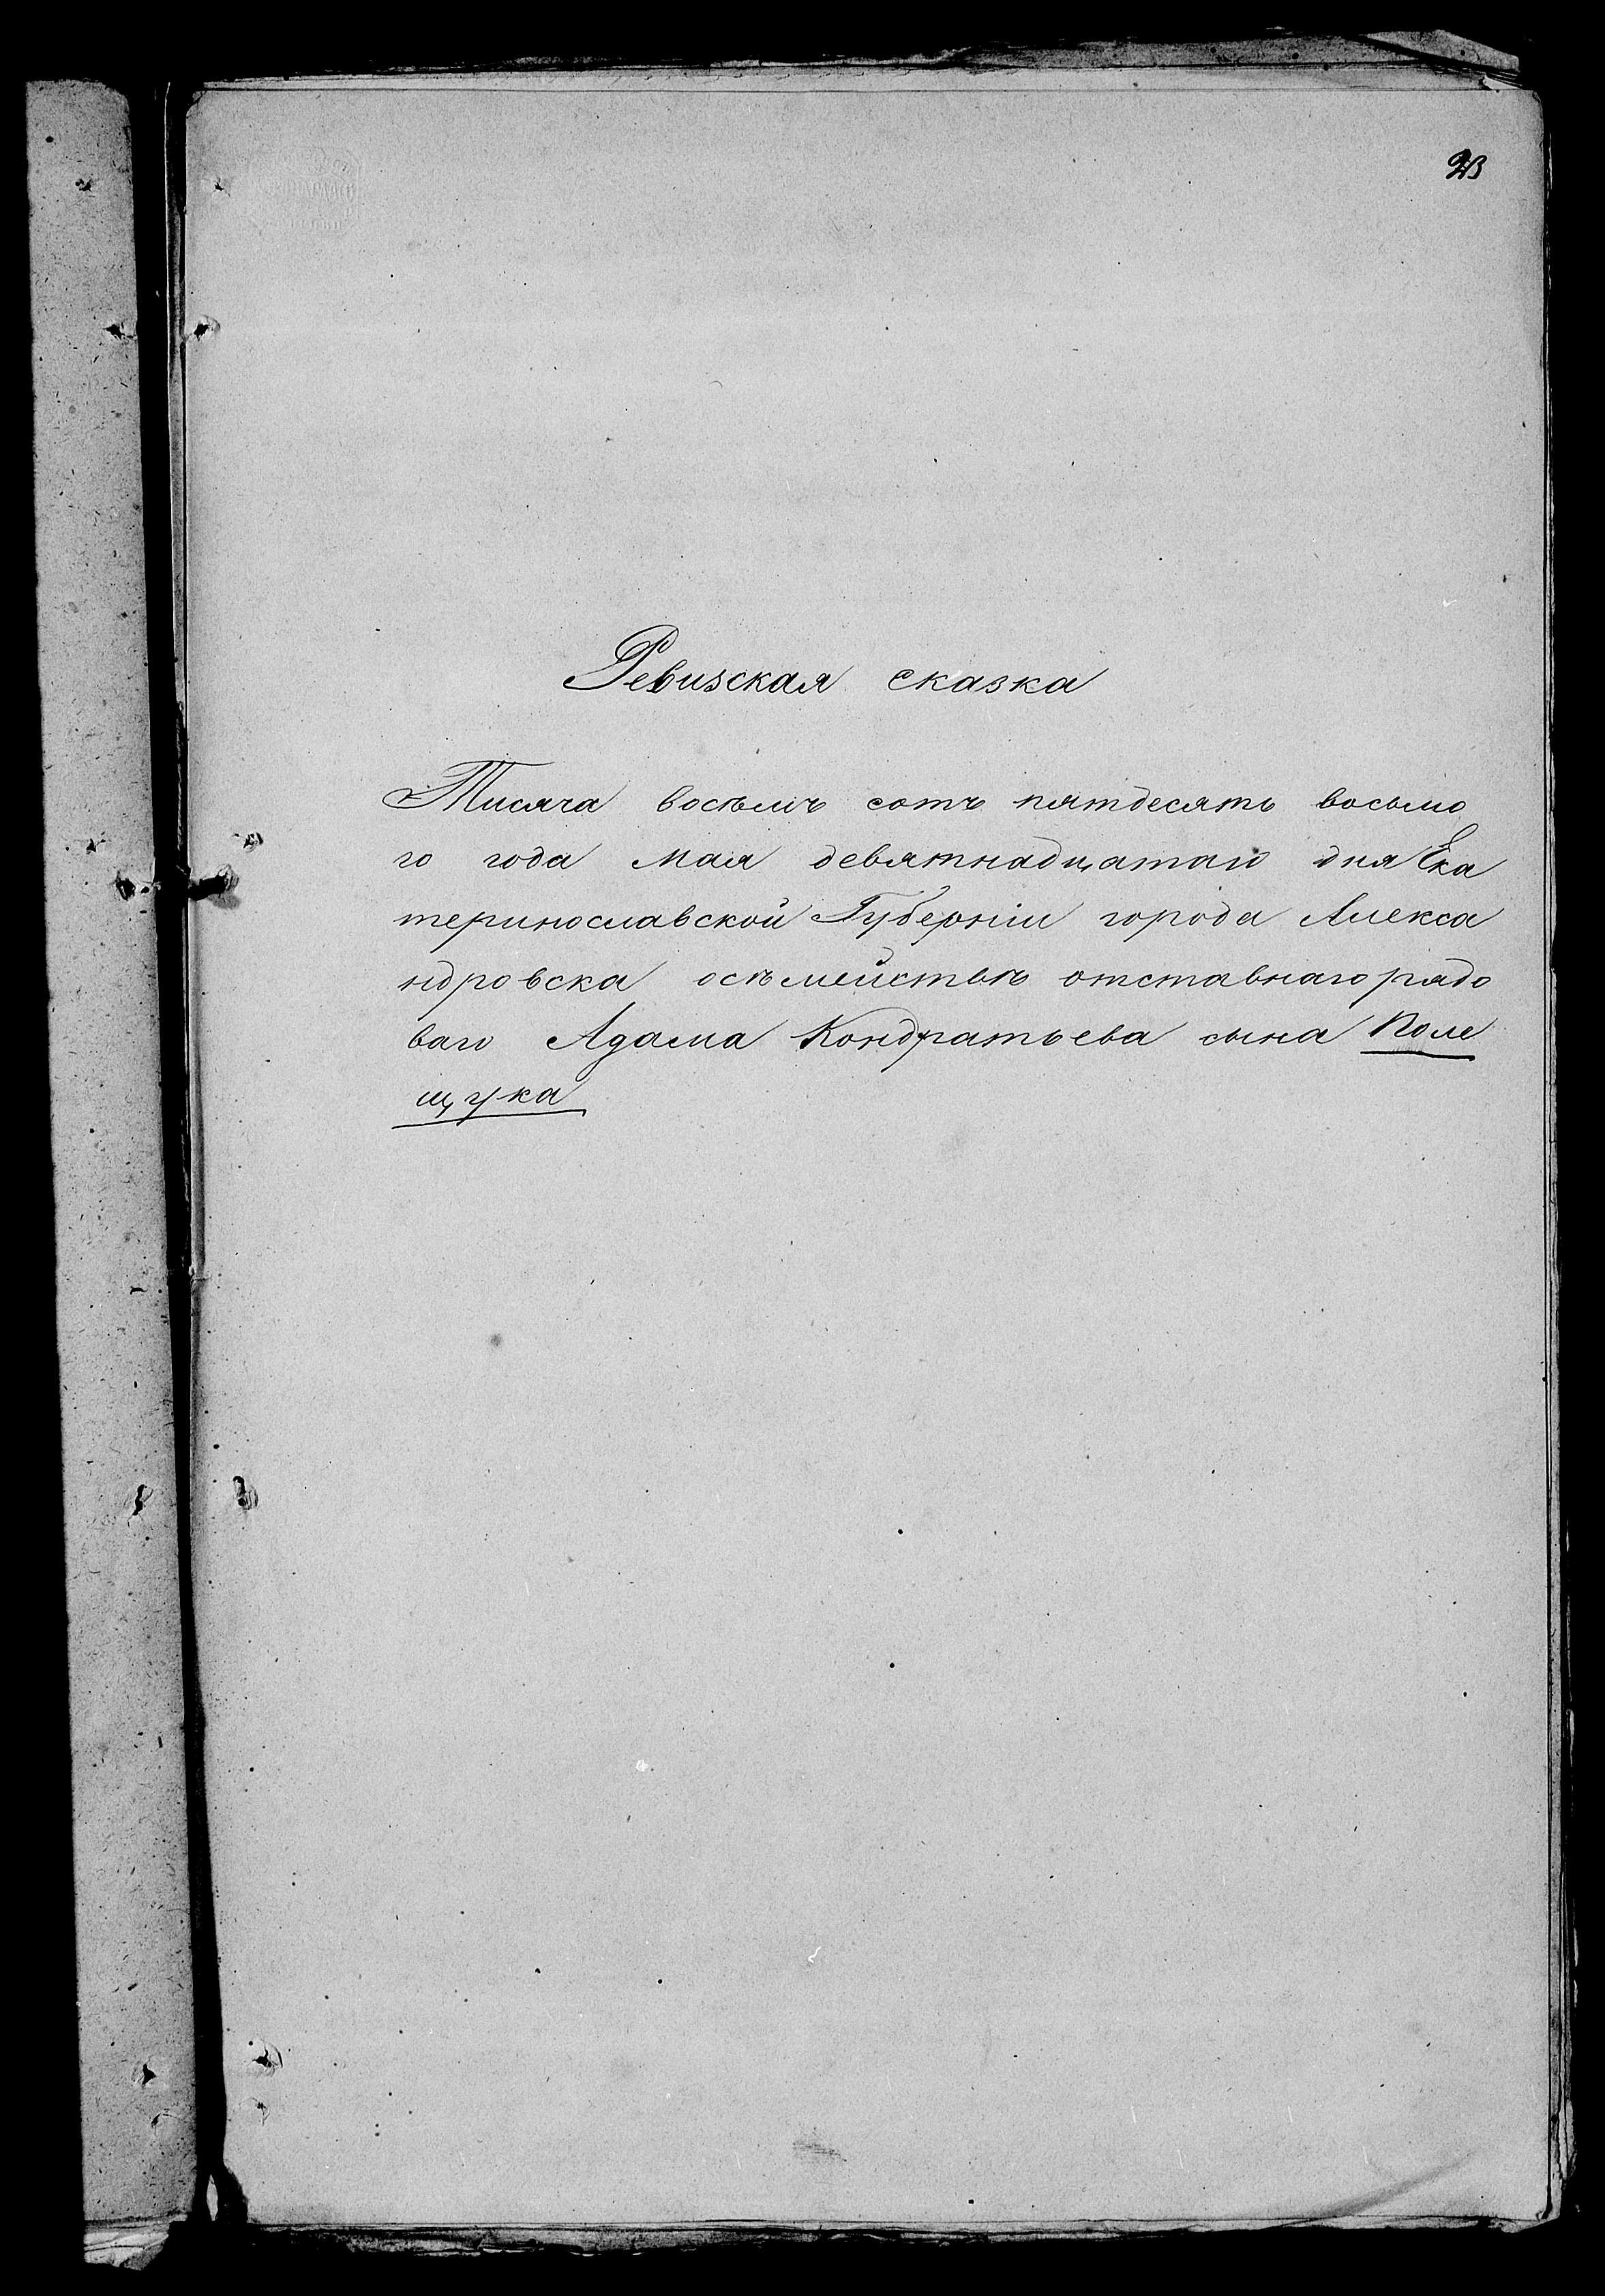 Ревизская сказка
Тисяча восѣмъ сотъ пятдесять восьмо
го года мая девятнадцатаго дня Ека
теринославской Губерніи города Алекса
ндровска осѣмействѣ отставнаго рядо
ваго Адама Кондратьева сына Поле
щука